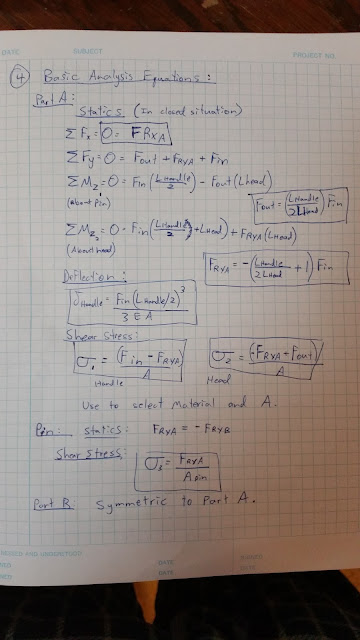 DATE SUBJECT PROJECT NO.
④ Basic Analysis Equations:
Part A:
Statics (In closed situation)
ΣFx = 0 = FRXA
ΣFy = 0 = Fout + FRYA + Fin
ΣMz = 0 = Fin (LHandle/2) - Fout (Lhead)
(about pin)
Fout = (LHandle/2LHead) Fin
ΣMz2 = 0 - Fin (LHandle/2 + LHead) + FRYA (LHead)
(About head)
FRYA = -(LHandle/2LHead + 1) Fin
Deflection:
δHandle = Fin (LHandle/2)³ / 3EA
Shear stress:
σ1 = (Fin - FRYA) / A
Handle
σ2 = (-FRYA + Fout) / A
Head
Use to select Material and A.
Pin: Statics: FRYA = - FRYB
Shear Stress: σ3 = FRYA / Apin
Part B: Symmetric to Part A.
AND UNDERSTOOD
DATE
DATE